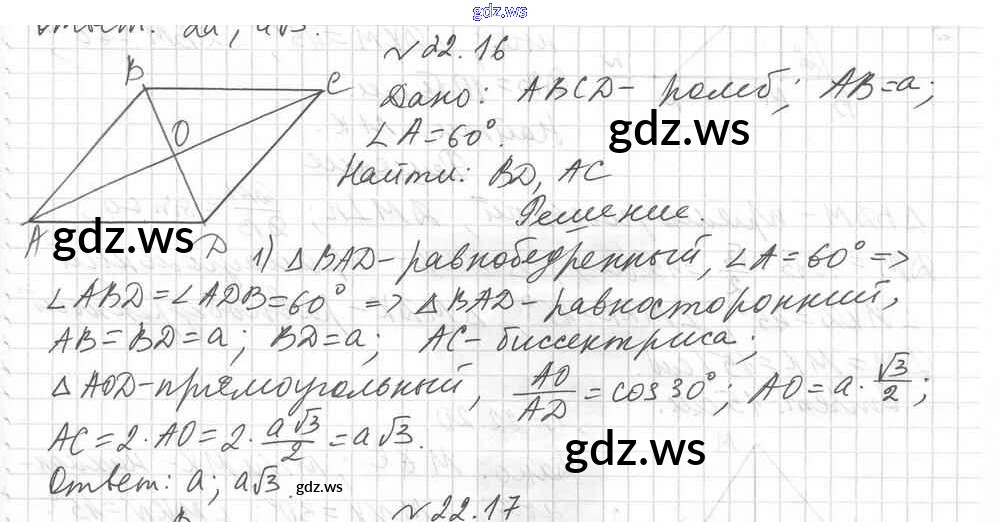 gdz.ws
Ответ: 2a; a√3.
№22.16
B C O A D
Дано: ABCD - ромб; AB=a;
∠A=60°.
gdz.ws
Найти: BD, AC
Решение.
gdz.ws
1) △BAD - равнобедренный, ∠A=60° =>
∠ABD=∠ADB=60° => △BAD - равносторонний,
AB=BD=a; BD=a; AC - биссектриса;
△AOD - прямоугольный, AO/AD = cos 30°; AO=a·√3/2;
AC=2·AO=2·a√3/2=a√3.
gdz.ws
Ответ: a; a√3.
gdz.ws
№22.17